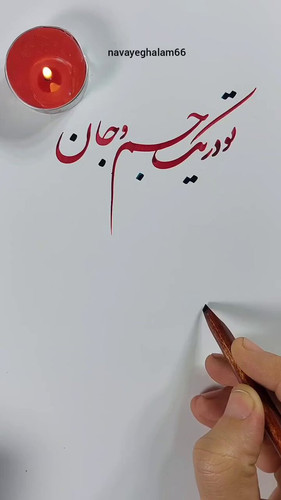 navayeghalam66
تو در یک جسم و جان